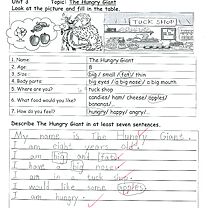 Unit 3 Topic: The Hungry Giant
Look at the picture and fill in the table.
TUCK SHOP
1. Name: The Hungry Giant
2. Age: 8
3. Size: big/ small / fat/ thin
4. Body parts: big eyes / a big nose / a big mouth
5. Where are you? tuck shop
6. What food would you like? candies/ ham/ cheese/ apples/
bananas/
7. How do you feel? hungry/ happy/ angry/
Describe The Hungry Giant in at least seven sentences.
My name is The Hungry Giant.
I am eight years old.
I am big and fat.
I have big nose.
I am in a tuck shop.
I would like some apples.
I am hungry.